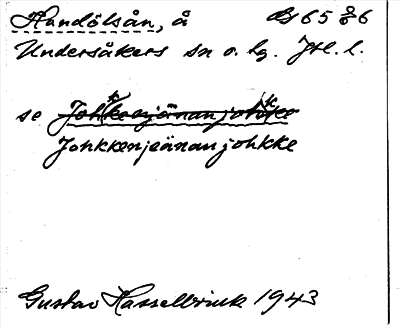 Handölsån, å
Undersåkers sn o. hg. Jtl. l.
se Johkkenjeänanjohkke
Johkkenjeänanjohkke
Gustav Hasselbrink 1943